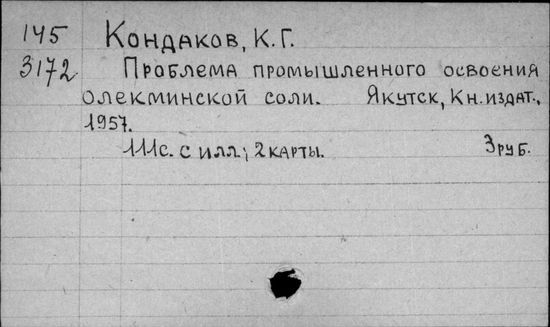 145 Кондаков, К.Г.
3172 Проблема промышленного освоения
олекминской соли. Якутск, Кн.издат.,
1957.
111с. с илл.; 2 карты. 3 руб.